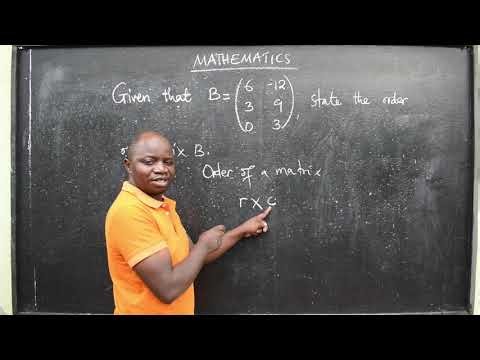 MATHEMATICS
Given that B = (6 -12 3 9 0 3), state the order
B.
Order of a matrix
r x c